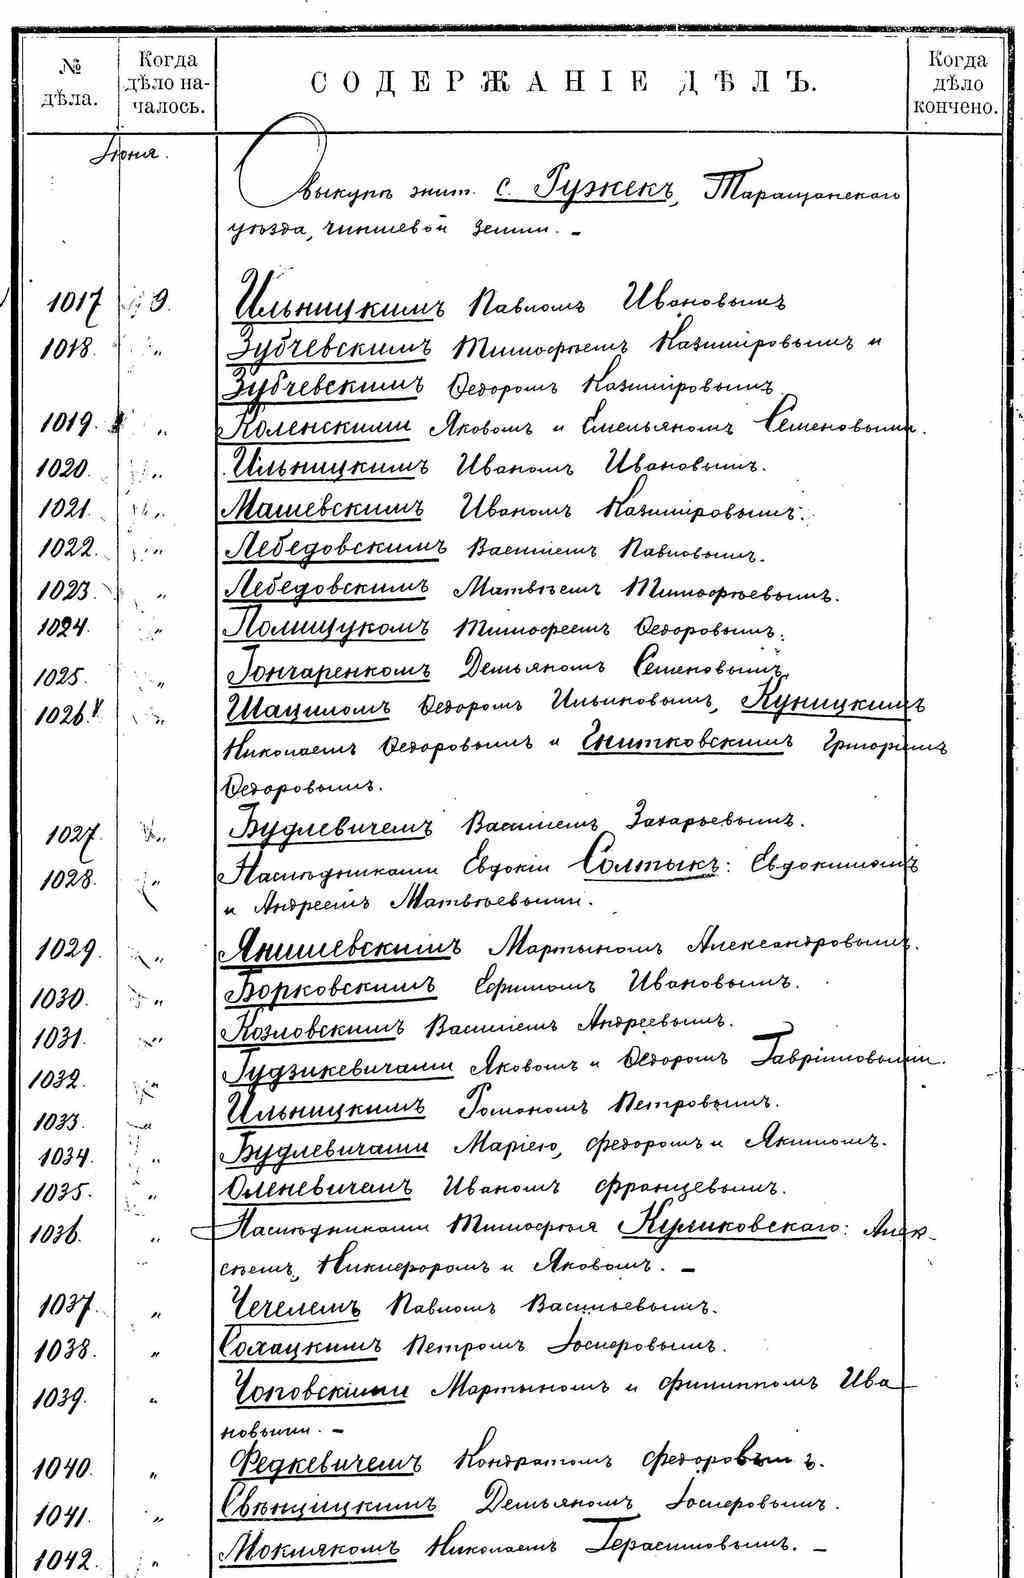 № дѣла.
Когда дѣло началось.
СОДЕРЖАНІЕ ДѢЛЪ.
Когда дѣло кончено.
Іюня.
О выкупѣ жит. с. Ружекъ, Таращанскаго
уѣзда, чиншевой земли. –
1017 9. Ильницкимъ Павломъ Ивановымъ
1018. „ Зубчевскимъ Тимофѣемъ Казиміровымъ и
Зубчевскимъ Ѳедоромъ Казиміровымъ
1019. „ Коленскими Яковомъ и Емельяномъ Семеновыми.
1020. „ Ильницкимъ Иваномъ Ивановымъ.
1021. „ Машевскимъ Иваномъ Казиміровымъ.
1022. „ Лебедовскимъ Василіемъ Павловымъ.
1023. „ Лебедовскимъ Матвѣемъ Тимофѣевымъ.
1024. „ Полищукомъ Тимофеемъ Ѳедоровымъ.
1025. „ Гончаренкомъ Демьяномъ Семеновымъ
1026. „ Шациломъ Ѳедоромъ Ильиковымъ, Куницкимъ
Николаемъ Ѳедоровымъ и Гнитковскимъ Григоріемъ
Ѳедоровымъ.
1027. „ Будлевичемъ Василіемъ Захарьевымъ.
1028. „ Наслѣдниками Евдокіи Солтыкъ: Евдокимомъ
и Андреемъ Матвѣевыми.
1029. „ Янишевскимъ Мартыномъ Александровымъ.
1030. „ Борковскимъ Ефимомъ Ивановымъ.
1031. „ Козловскимъ Василіемъ Андреевымъ.
1032. „ Гудзикевичами Яковомъ и Ѳедоромъ Гавріиловыми.
1033. „ Ильницкимъ Романомъ Петровымъ.
1034. „ Будлевичами Маріею, Федоромъ и Якимомъ.
1035. „ Оленевичемъ Иваномъ Францевымъ.
1036. „ Наслѣдниками Тимофѣя Куликовскаго: Алек-
сѣемъ, Никифоромъ и Яковомъ. –
1037. „ Чечелемъ Павломъ Васильевымъ.
1038. „ Сохацкимъ Петромъ Іосифовымъ.
1039. „ Чоповскими Мартыномъ и Филиппомъ Ива
новыми. –
1040. „ Федкевичемъ Кондратомъ Федоровымъ.
1041. „ Свѣнціцкимъ Демьяномъ Іосифовымъ.
1042. „ Моклякомъ Николаемъ Герасимовымъ. –